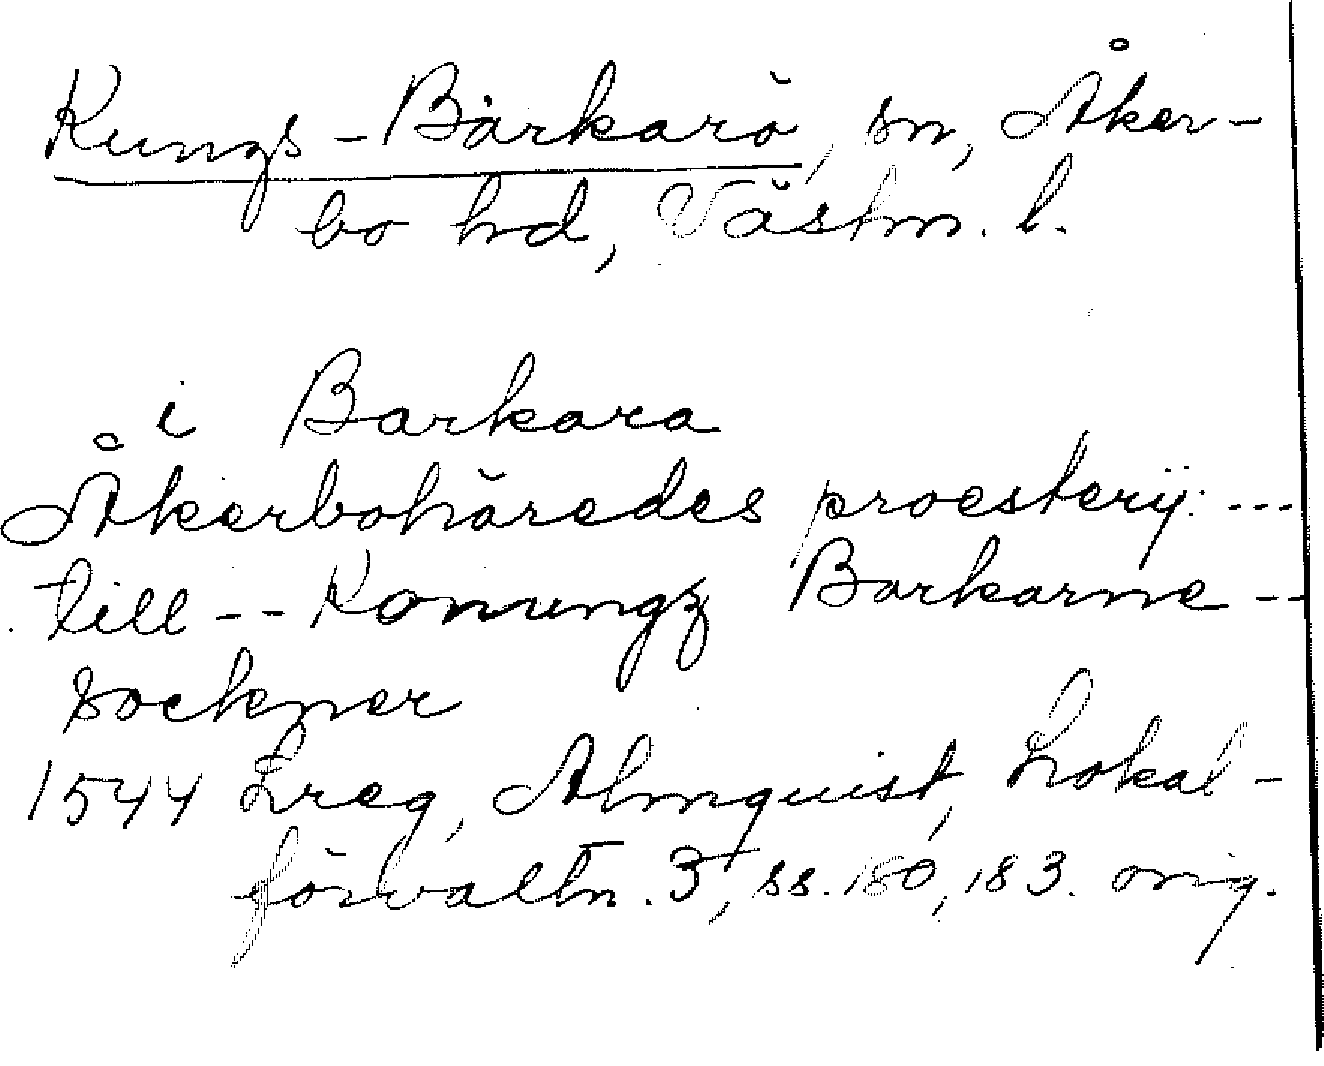 Kungs-Barkarö, sn, Åker-
bo hd, Västm. l.
i Barkara
Åkerbohäredes proesterij: ---
till -- Konungz Barkarne --
sockner
1544 Lreg, Almquist, Lokal-
förvaltn. 3, ss. 180, 183. orig.